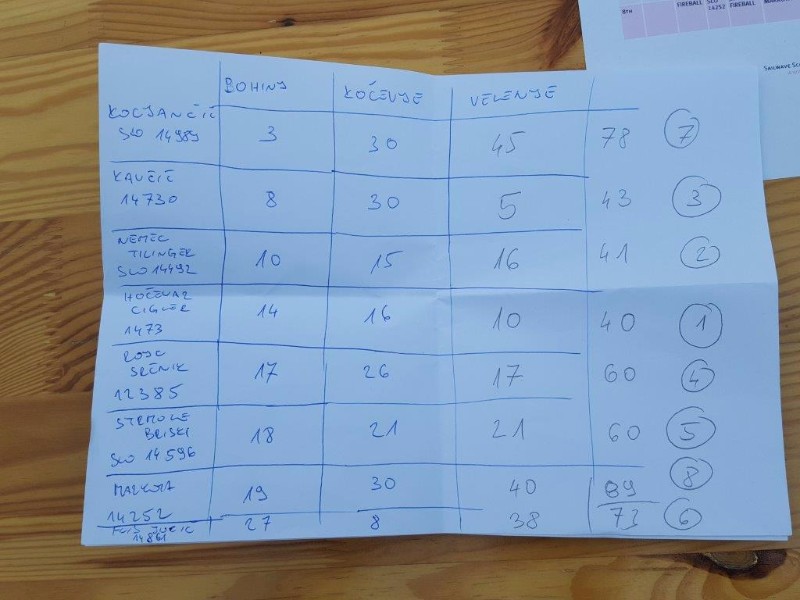 FIREBALL SLO 14252 FIREBALL
SAILWAVE SC
BOHINJ KOČEVJE VELENJE
KOCJANČIČ
SLO 14989 3 30 45 78 7
KAVČIČ
14730 8 30 5 43 3
NEMEC
TILINGER
SLO 14492 10 15 16 41 2
HOČEVAR
CIGLER
1473 14 16 10 40 1
ROJC
SREČNIK
12385 17 26 17 60 4
STRMOLE
BRISKI
SLO 14596 18 21 21 60 5
14252 19 30 40 89 8
14861 27 8 38 73 6